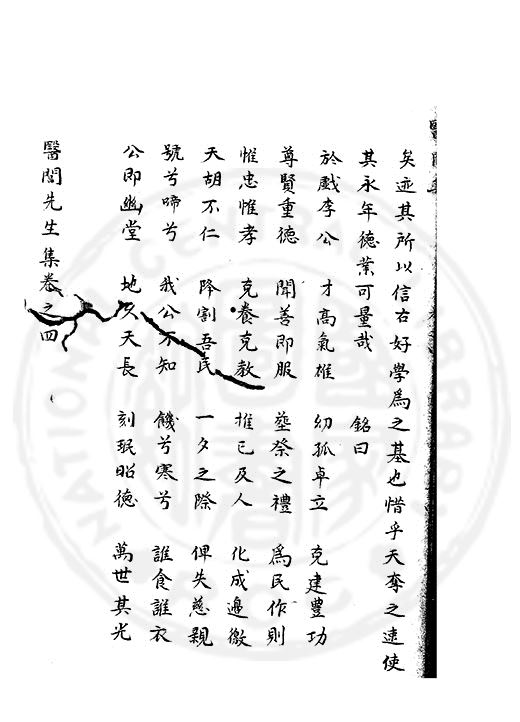 矣迹其所以信古好學爲之基也惜乎天奪之速使
其永年德業可量哉　　銘曰
於戲李公　才高氣雄　幼孤卓立　克建豐功
尊賢重德　聞善即服　塟祭之禮　爲民作則
惟忠惟孝　克養克教　推已及人　化成邊徼
天胡不仁　降割吾民　一夕之際　俾失慈親
號兮啼兮　我公不知　饑兮寒兮　誰食誰衣
公即幽堂　地久天長　刻珉昭德　萬世其光
醫閭先生集卷之四